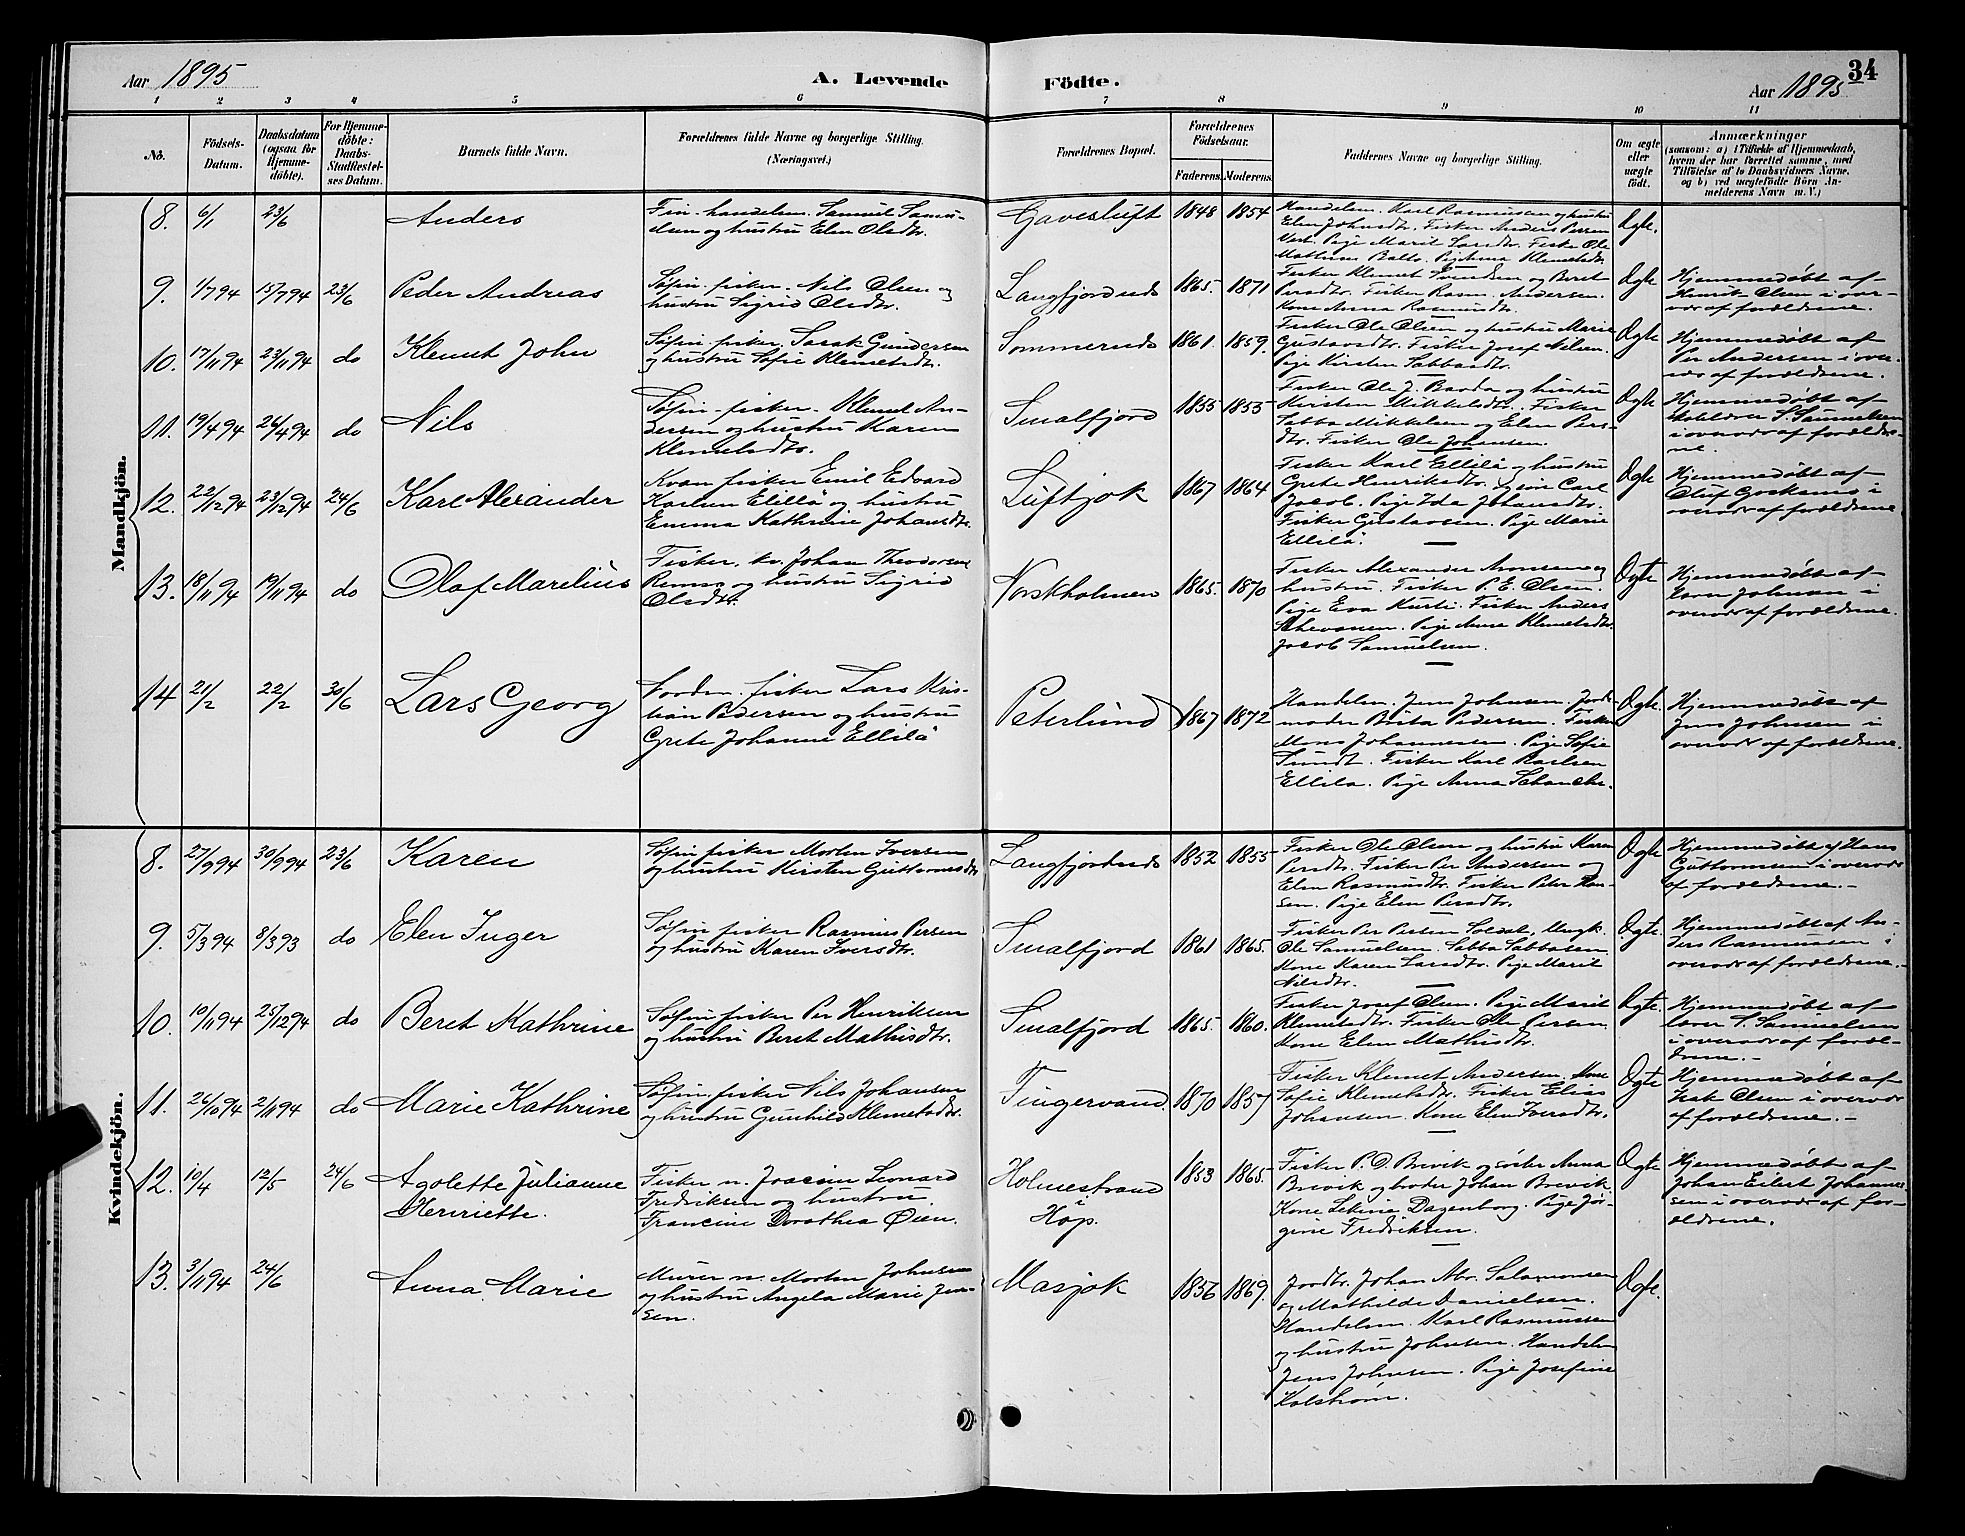 Aar 1895
A. Levende
Födte.
Aar 1895
34
1 2 3 4 5 6 7 8 9 10 11
No.
Födsels-
Datum.
Daabsdatum
(ogsaa for
Hjemme-
döbte).
For Hjemme-
döbte:
Daabs-
Stadfæstel-
ses Datum.
Barnets fulde Navn.
Forældrenes fulde Navne og borgerlige Stilling.
(Næringsvei.)
Forældrenes Bopæl.
Forældrenes
Födselsaar.
Faderens. Moderens.
Faddernes Navne og borgerlige Stilling.
Om ægte
eller
uægte
födt.
Anmærkninger
(saasom: a) i Tilfælde af Hjemmedaab,
hvem der har forrettet samme, med
Tilföielse af to Daabsvidners Navne,
og b) ved uægtefödte Börn An-
melderens Navn m. V.)
Mandkjön.
8. 6/1 23/6 Anders
Fin. handelsm. Samuel Samu-
elsen og hustru Elen Olsdtr.
Gavesluft 1848 1854
Handelsm. Karl Rasmussen og hustru
Elen Johnsdtr. Fisker Anders Persen
Vest. Pige Marit Larsdtr. Fisker Ole
Mathisen Balto. Pige Anna Klemetsdtr.
Ægte.
9. 1/7 94 15/7 94 23/6 Peder Andreas
Søfin. fisker. Nils Olsen og
hustru Sigrid Olsdtr.
Langfjordnæs 1865. 1871
Fisker Klemet Svendsen og Beret
Persdtr. Fisker Rasm. Andersen.
Kone Anna Rasmusdtr.
Ægte
Hjemmedøbt af
Henrik Olsen i over-
vær af forældrene.
10. 17/11 94 23/11 94 do Klemet John
Søfin. fisker. Isak Gundersen
og hustru Sofie Klemetsdtr.
Sommernæs 1861. 1859.
Fisker Ole Olsen og hustru Marie
Gustavsdtr. Fisker Josef Nilsen.
Pige Kirsten Sabbasdtr.
Ægte
Hjemmedøbt af
Per Andersen i over-
vær af forældrene.
11. 19/4 94 26/4 94 do Nils
Søfin. fisker. Klemet An-
dersen og hustru Karen
Klemetsdtr.
Smalfjord 1855 1855
Fisker Ole J. Banda og hustru
Kirsten Mikkelsdtr. Fisker
Sabba Mikkelsen og Elen Pers-
dtr. Fisker Ole Johansen.
Ægte
Hjemmedøbt af
S. Samuelsen
i overvær af forældre-
ne.
12. 22/12 94 23/12 94 24/6 Karl Alexander
Kvæn fisker Emil Edvard
Karlsen Ellilä og hustru
Emma Kathrine Johansdtr.
Luftjok 1867 1864
Fisker Karl Ellilä og hustru
Grete Henriksdtr. og søn Carl
Jacob. Pige Ida Johansdtr.
Fisker Gustavsen. Pige Marie
Ellilä.
Ægte
Hjemmedøbt af
Oluf Goskamo i
overvær af forældrene
13. 18/11 94 19/11 94 do Olaf Marelius
Fisker. kv. Johan Theodorsen
og hustru Sigrid
Olsdtr.
Norskholmen 1865. 1870
Fisker Alexander Aronsen og
hustru. Fisker P. E. Olsen.
Pige Eva Kurti. Fisker Anders
Pige Anne Klemetsdtr.
Jacob Samuelsen.
Ægte
Hjemmedøbt af
Johnsen i
overvær af forældrene.
14 21/2 22/2 30/6 Lars Georg
Nordm. fisker Lars Kris-
tian Pedersen og hustru
Grete Johanne Ellilä
Peterlund 1867 1872
Handelsm. Jens Johnsen. Jord-
moder Brita Pedersen. Fisker
Mons Johannessen. Pige Sofie
Sundt. Fisker Karl Karlsen
Ellila. Pige Anna Schanche.
Ægte.
Hjemmedøbt af
Jens Johnsen i
overvær af forældrene.
Kvindekjön.
8. 27/9 94 30/9 94 23/6 Karen
Søfin fisker Morten Iversen
og hustru Kirsten Guttormsdtr
Langfjordnæs 1852 1855
Fisker Ole Olsen og hustru Karen
Persdtr. Fisker Per Andersen og
Elen Rasmusdtr. Fisker Peter Han-
sen. Pige Elen Persdtr.
Ægte
Hjemmedøbt af Hans
Guttormsen i overvær
af forældrene.-
9. 5/3 94 8/3 93 do Elen Inger
Søfin fisker Rasmus Persen
og hustru Karen Iversdtr.
Smalfjord 1861 1865.
Fisker Per Persen Soldat, Ungk.
Ole Samuelsen. Sabba Sabbasen
Kone Karen Larsdtr. Pige Marit
Nilsdtr.
Ægte.
Hjemmedøbt af An-
ders Rasmussen i
overvær af forældrene.-
10. 10/11 94 25/12 94 do Beret Kathrine
Søfin fisker Per Henriksen
og hustru Beret Mathisdtr.
Smalfjord 1865. 1860.
Fisker Josef Olsen. Pige Marit
Klemetsdtr. Fisker Ole Persen
Kone Elen Mathisdtr.
Ægte.
Hjemmedøbt af
lærer S. Samuelsen
i overvær af foræl-
drene.-
11. 26/10 94 2/11 94 do Marie Kathrine
Søfin. fisker Nils Johansen
og hustru Gunhild Klemetsdtr.
Tingervand. 1870 1857
Fisker Klemet Andersen. Kone
Sofie Klemetsdtr. Fisker Elias
Johansen. Kone Elen Iversdtr.
Ægte
Hjemmedøbt af
Isak Olsen i overvær
af forældrene.-
12. 10/4 12/5 24/6 Agolette Julianne
Henriette.
Fisker n. Joacim Leonard
Fredriksen og hustru
Francine Dorothea Øien.
Holmestrand
i
Hop. 1853 1865.
Fisker P. D. Brevik og søster Anna
Brevik og broder Johan Brevik
Kone Sekine Dagenborg. Pige Jør-
gine Fredriksen.
Ægte
Hjemmedøbt af
Johan Eilert Johannes-
sen i overvær af for-
ældrene.
13. 3/11 94 24/6 Anna Marie
Murer n. Morten Johnsen
og hustru Angela Marie Jen-
sen.
Masjok 1856 1869.
Jordbr. Johan Abr. Salamonsen
og Mathilde Danielsen.
Handelsm. Karl Rasmussen
og hustru Johnsen. Handelsm
Jens Johnsen. Pige Josefine
Kolstrøm.
Ægte.